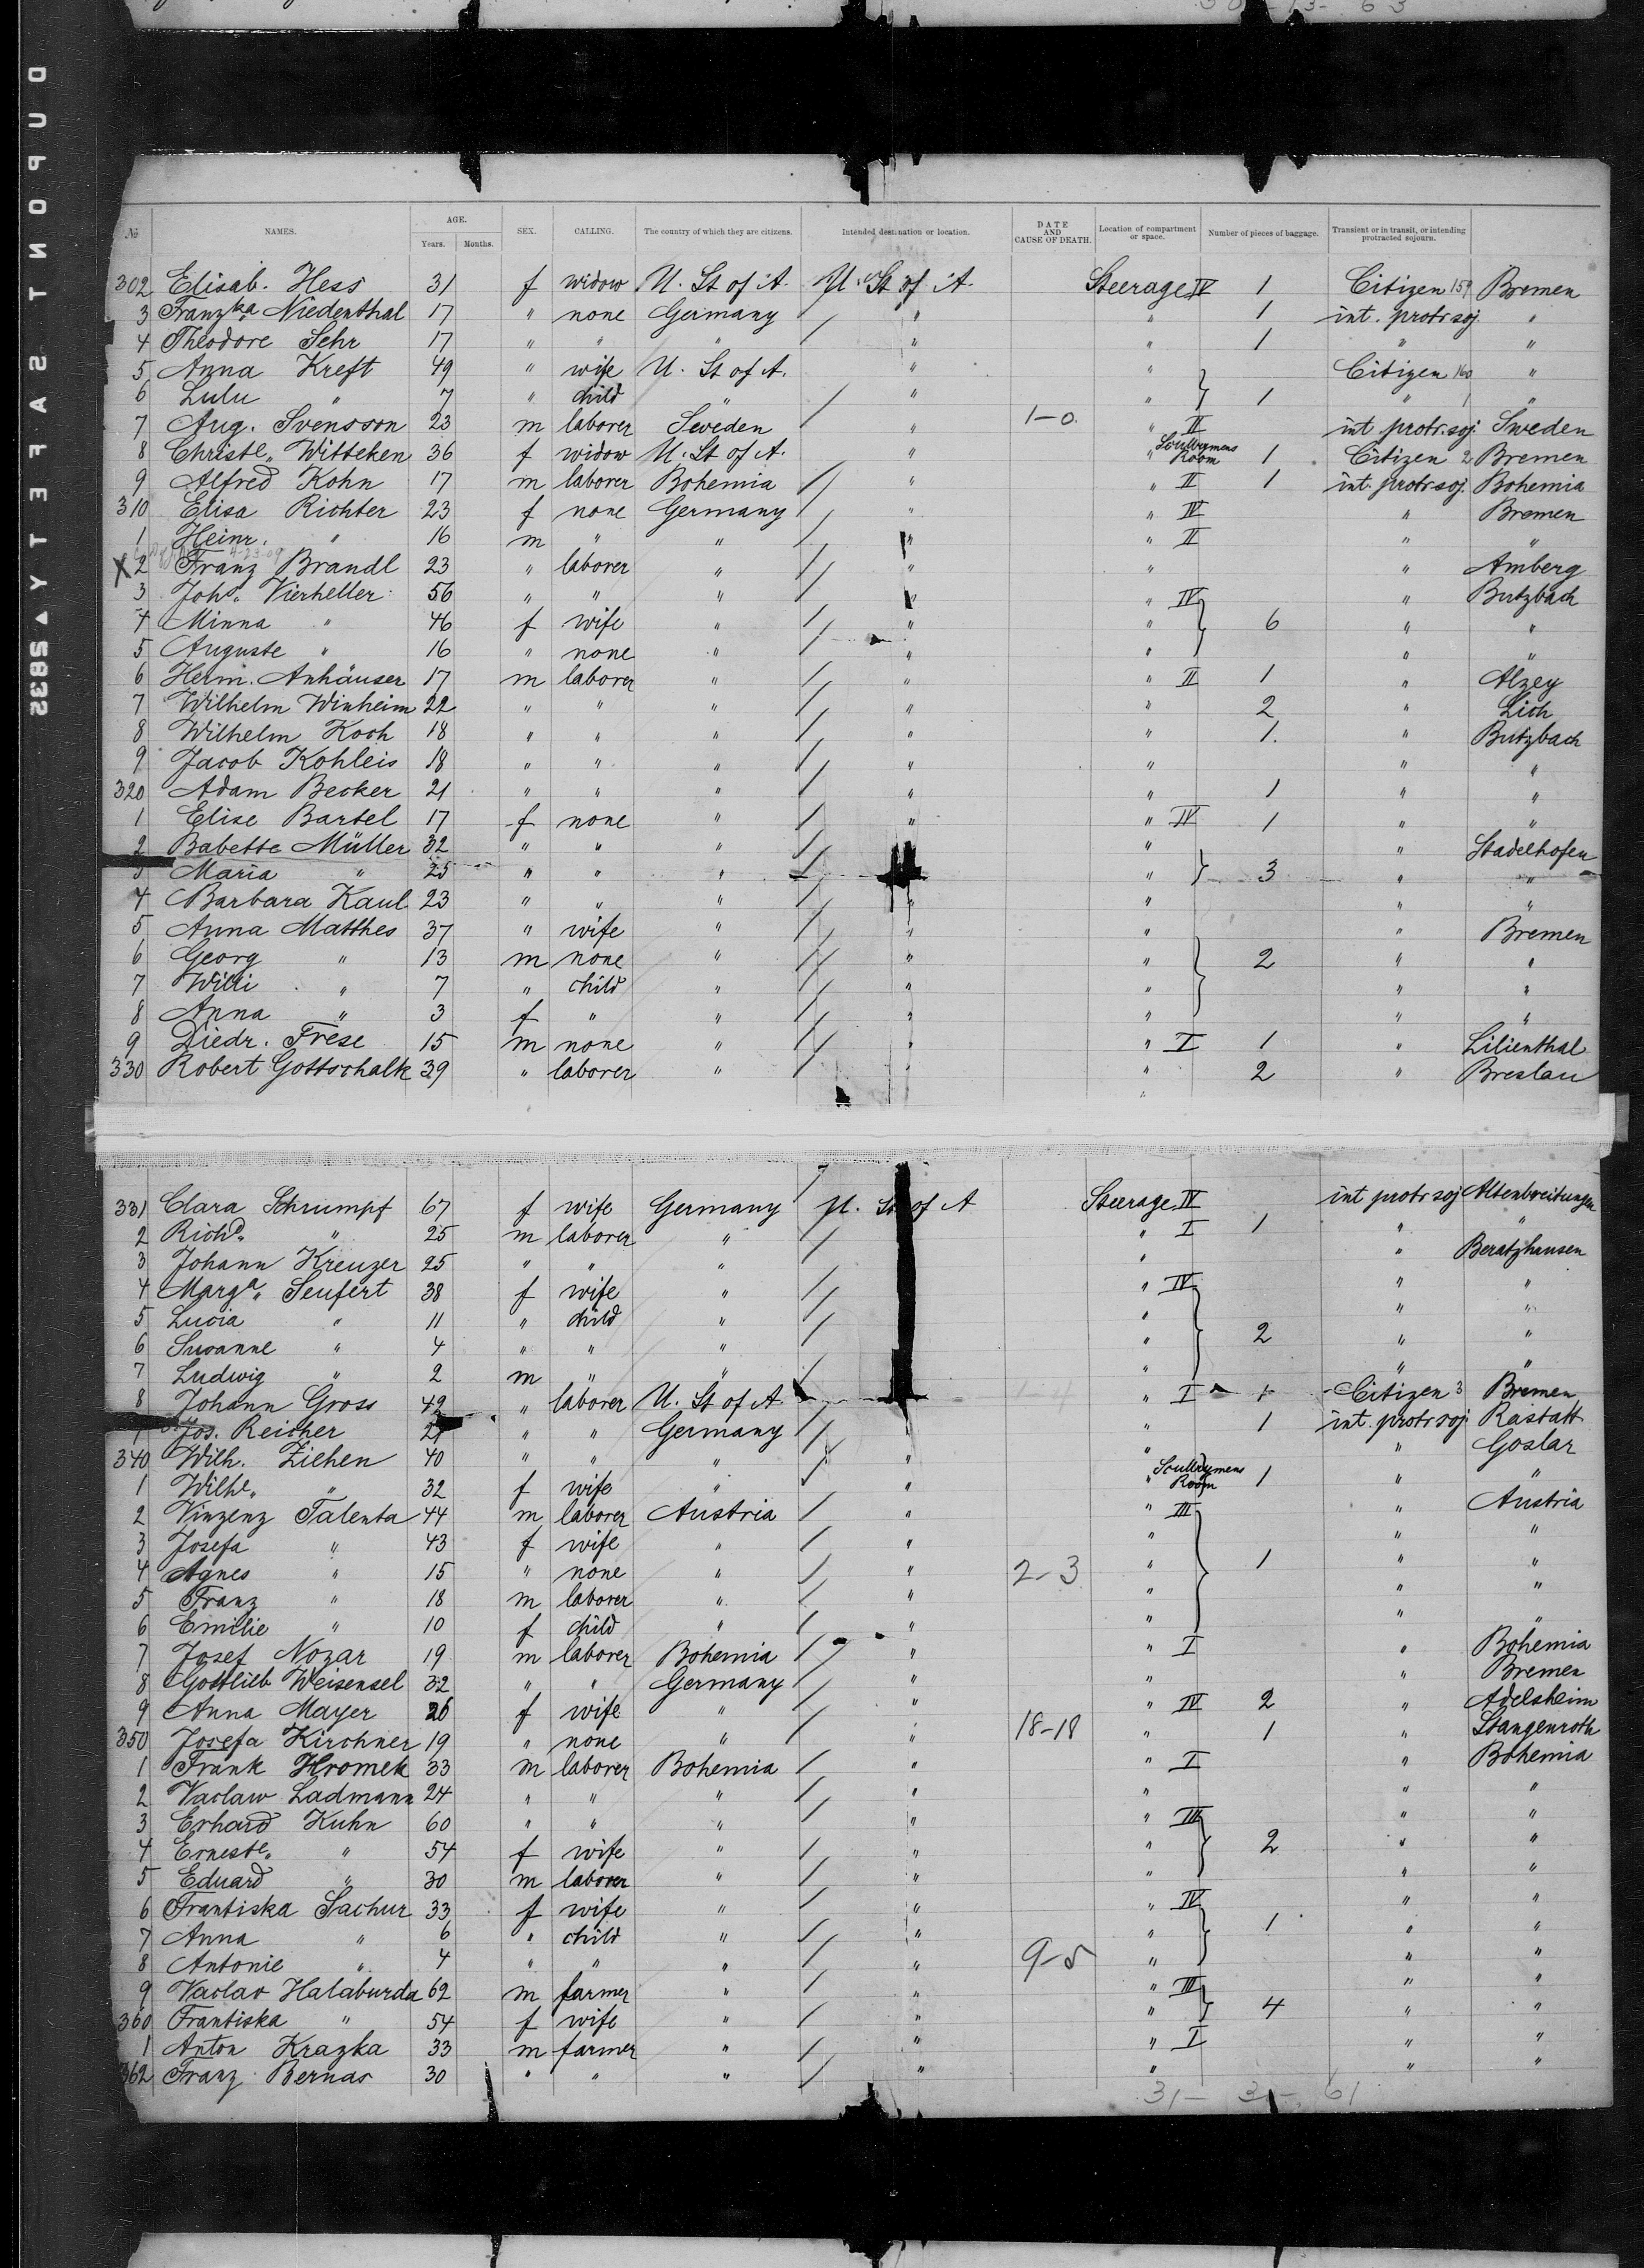 DUPONT SAFETY ▲ 5832
№ NAMES. AGE. Years. Months. SEX. CALLING. The country of which they are citizens. Intended destination or location. DATE AND CAUSE OF DEATH. Location of compartment or space. Number of pieces of baggage. Transient or in transit, or intending protracted sojourn.
302 Elisab. Hess 31 f widow U. St of A. U. St of A. Steerage IV 1 Citizen 159 Bremen
3 Franzka Niedenthal 17 " none Germany " " 1 int. protr soj. "
4 Theodore Sehr 17 " " " " " 1 " "
5 Anna Kreft 49 " wife U. St of A. " " Citizen 160 "
6 Lulu " 7 " child " " " 1 " "
7 Aug. Svensson 23 m laborer Sweden " 1-0 " II int protr. soj. Sweden
8 Christe. Witteken 36 f widow U. St of A. " " Room 1 Citizen 2 Bremen
9 Alfred Kohn 17 m laborer Bohemia " " II 1 int. protr. soj. Bohemia
310 Elisa Richter 23 f none Germany " " IV " Bremen
1 Heinr. " 16 m " " " " II " "
X 2 Franz Brandl 23 " laborer " " " " Amberg
3 Johs. Vierheller 56 " " " " " IV " Butzbach
4 Minna " 46 f wife " " " 6 " "
5 Auguste " 16 " none " " " " "
6 Herm. Anhäuser 17 m laborer " " " II 1 " Alzey
7 Wilhelm Winheim 22 " " " " " 2 " Lich
8 Wilhelm Koch 18 " " " " " 1. " Butzbach
9 Jacob Kohleis 18 " " " " " " "
320 Adam Becker 21 " " " " " 1 " "
1 Elise Bartel 17 f none " " " IV 1 " "
2 Babette Müller 32 " " " " " " Stadelhofen
3 Maria " 25 " " " " 3 " "
4 Barbara Kaul 23 " " " " " " "
5 Anna Matthes 37 " wife " " " " Bremen
6 Georg " 13 m none " " " 2 " "
7 Willi " 7 " child " " " " "
8 Anna " 3 f " " " " " "
9 Diedr. Frese 15 m none " " " I 1 " Lilienthal
330 Robert Gottschalk 39 " laborer " " " 2 " Breslau
331 Clara Schrumpf 67 f wife Germany U. St of A Steerage IV int protr soj Altenbreitungen
2 Richd. " 25 m laborer " " I 1 " "
3 Johann Kreuzer 25 " " " " " Beratzhausen
4 Marga. Seufert 38 f wife " " IV " "
5 Lucia " 11 " child " " " "
6 Susanne " 4 " " " " 2 " "
7 Ludwig " 2 m " " " " "
8 Johann Gross 42 " laborer U. St of A. " I Citizen 3 Bremen
Jos. Reicher " " Germany " " 1 int. protr soj. Rastatt
340 Wilh. Ziehen 40 " " " " " " Goslar
1 Wilhe. " 32 f wife " " " Room 1 " "
2 Vinzenz Talenta 44 m laborer Austria " " III " Austria
3 Josefa " 43 f wife " " " " "
4 Agnes " 15 " none " " 2-3 " 1 " "
5 Franz " 18 m laborer " " " " "
6 Emilie " 10 f child " " " " "
7 Josef Nozar 19 m laborer Bohemia " " I " Bohemia
8 Gottlieb Weisensel 32 " " Germany " " " Bremen
9 Anna Mayer 26 f wife " " " IV 2 " Adelsheim
350 Josefa Kirchner 19 " none " " 18-18 " 1 " Stangenroth
1 Frank Hromek 33 m laborer Bohemia " " I " Bohemia
2 Vaclaw Ladmann 24 " " " " " " "
3 Erhard Kuhn 60 " " " " " III " "
4 Erneste. " 54 f wife " " " 2 " "
5 Eduard " 30 m laborer " " " " "
6 Frantiska Sachur 33 f wife " " " IV " "
7 Anna " 6 " child " " " 1 " "
8 Antonie " 4 " " " " 9-5 " " "
9 Vaclav Halaburda 62 m farmer " " " III " "
360 Frantiska " 54 f wife " " " 4 " "
1 Anton Krazka 33 m farmer " " " I " "
362 Franz Bernas 30 " " " " " " "
31- 31- 61